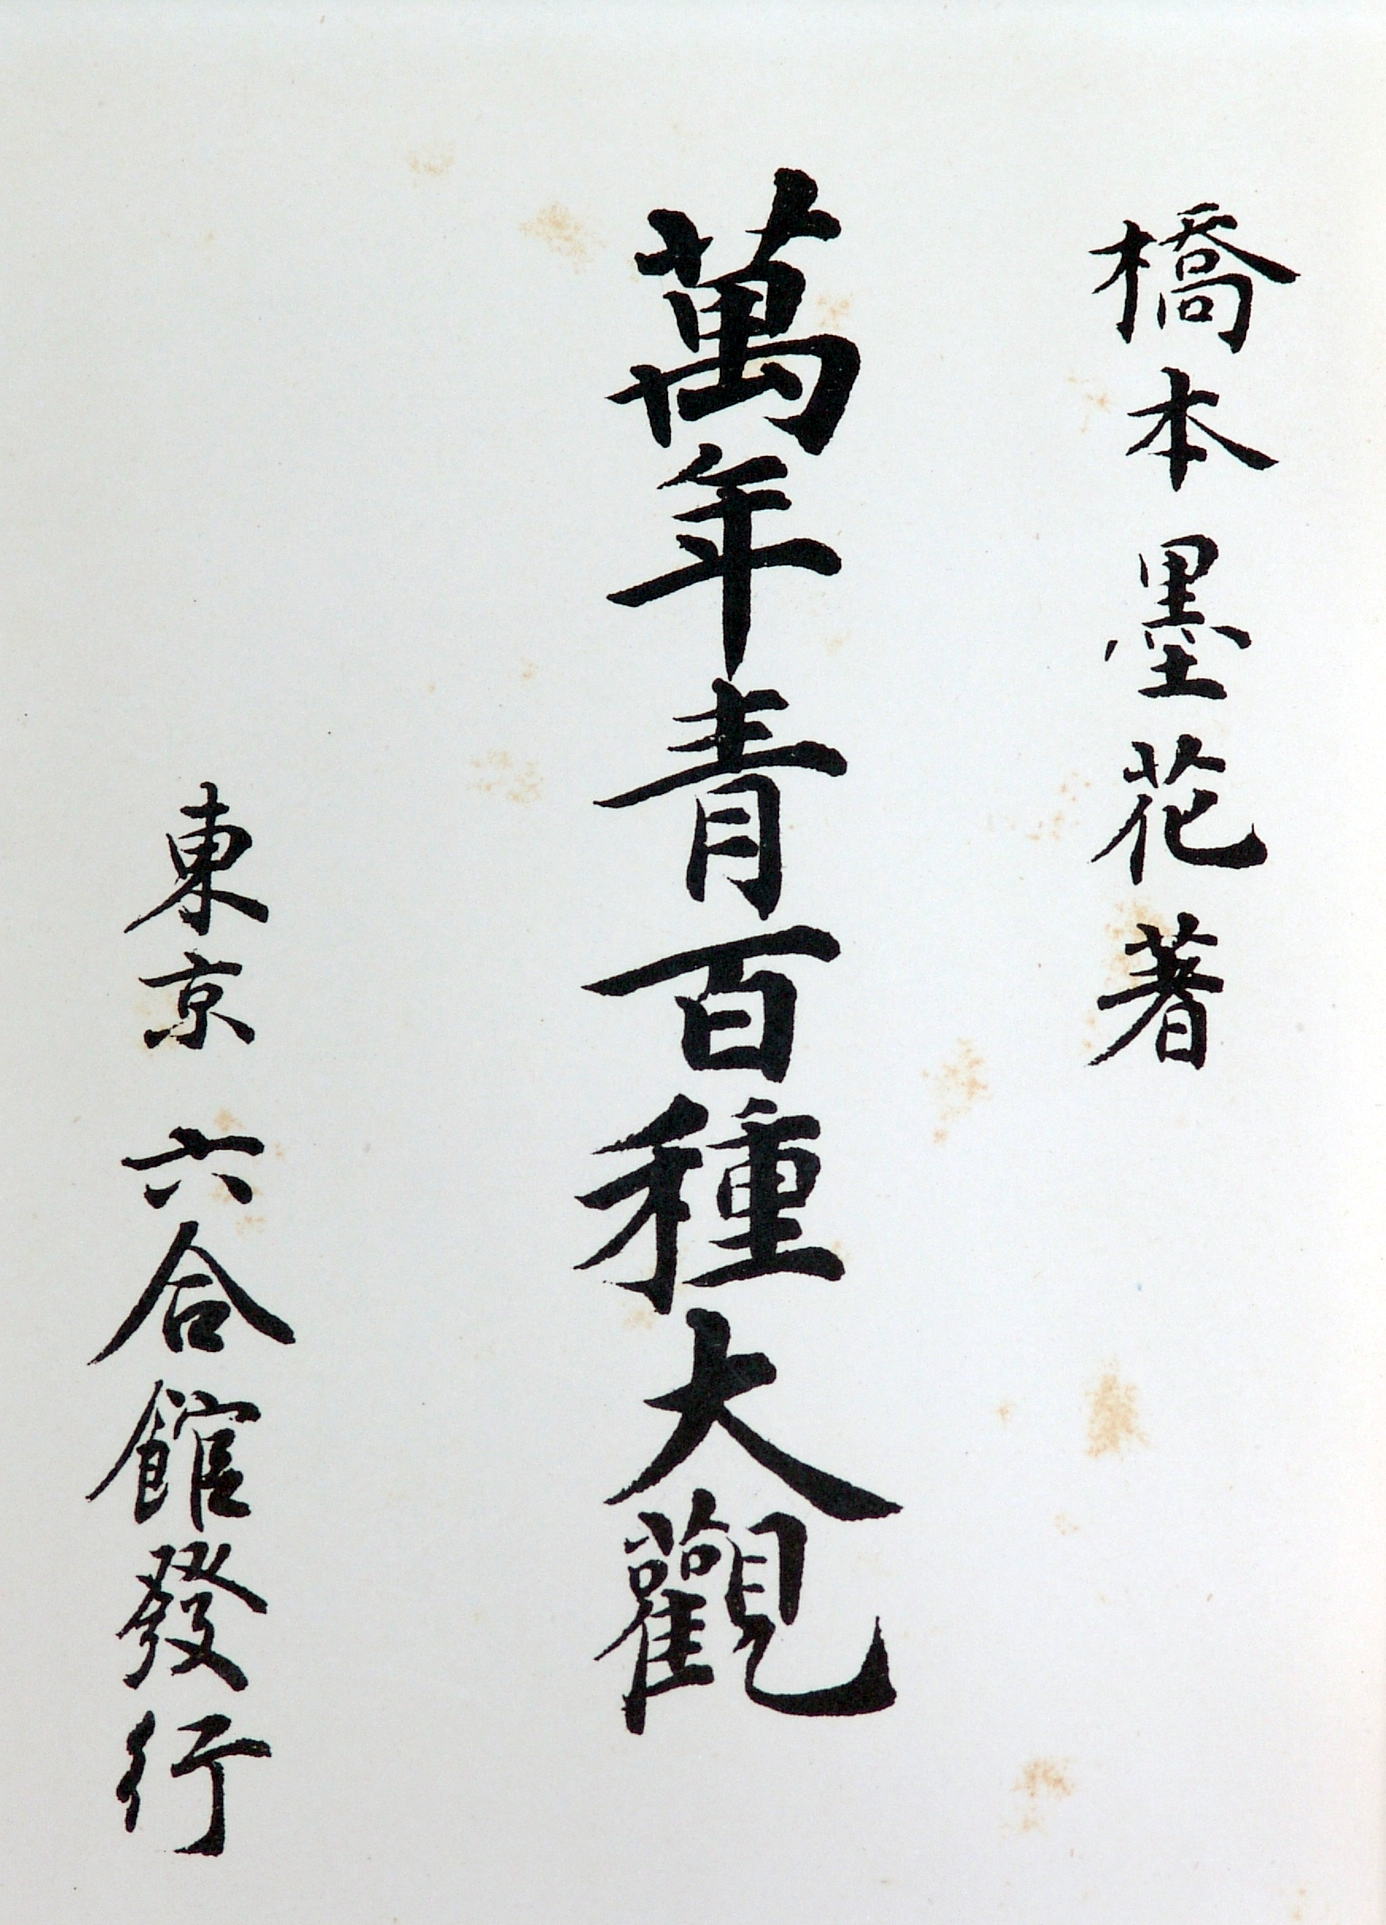 橋本墨花著
萬年青百種大觀
東京 六合館發行